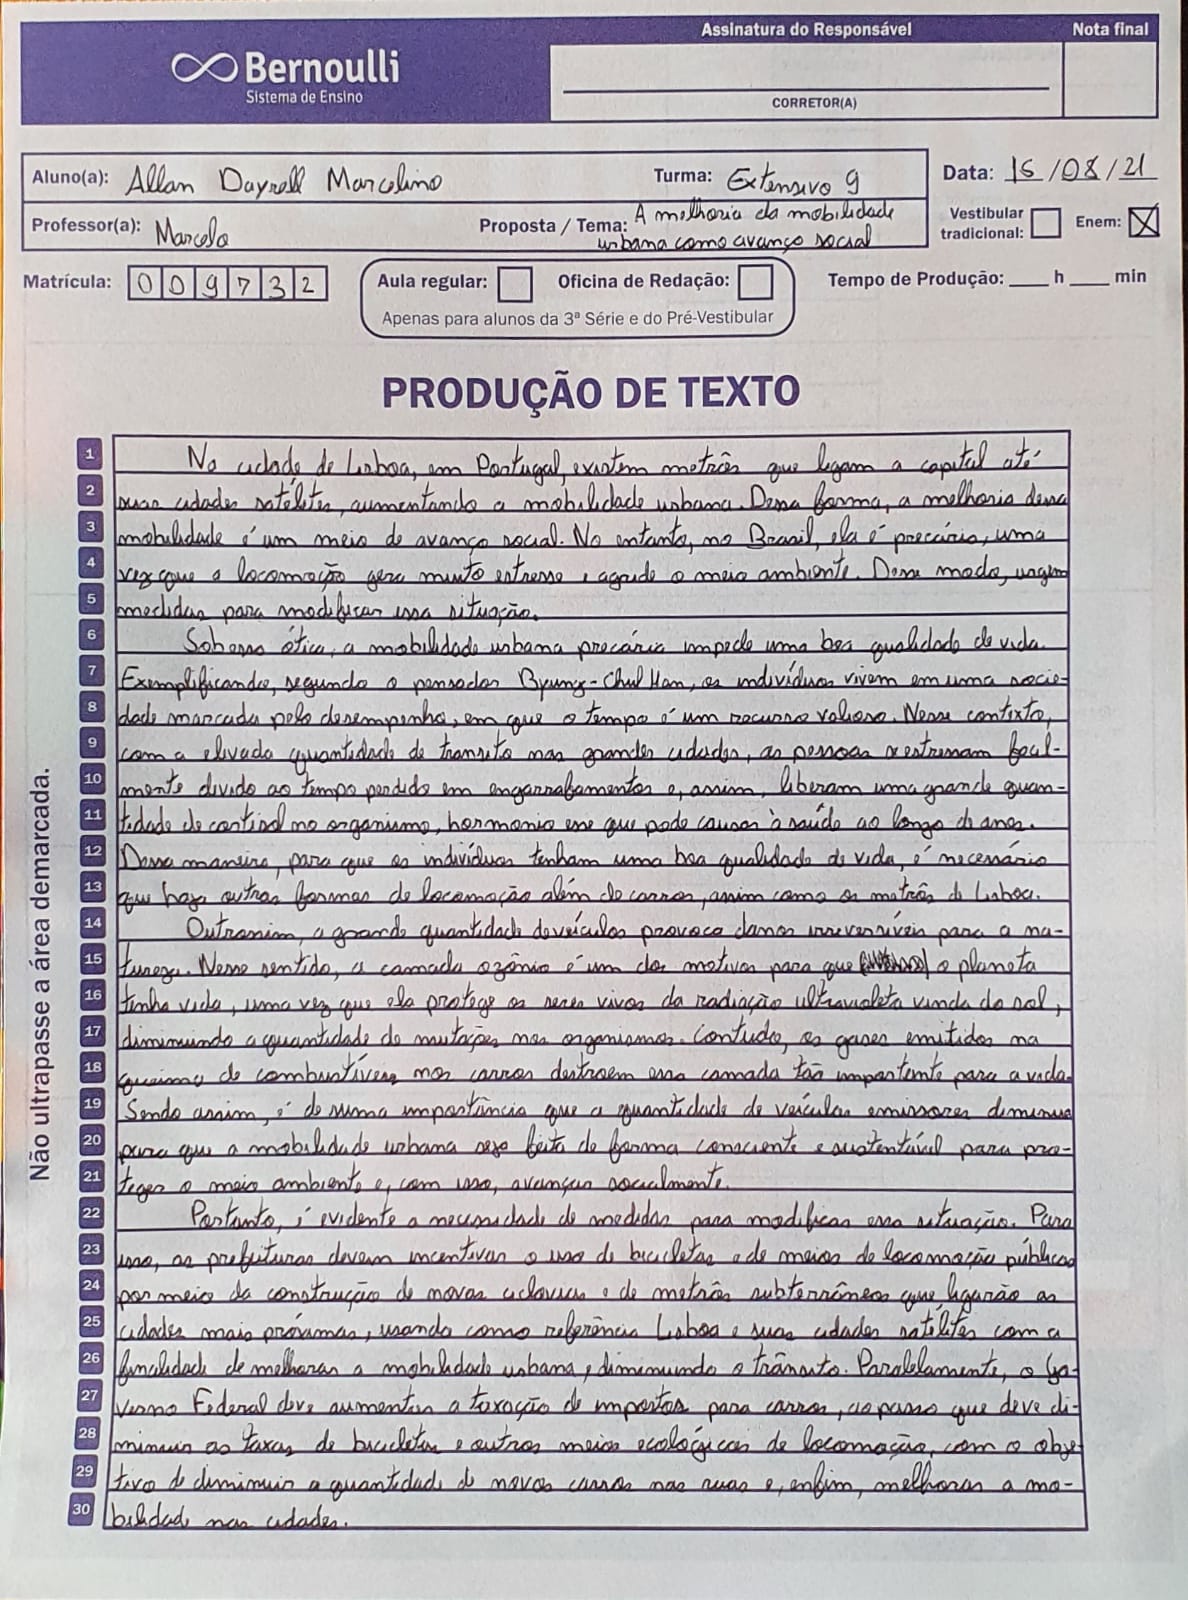 Bernoulli
Sistema de Ensino
Assinatura do Responsável
Nota final
CORRETOR(A)
Aluno(a): Allan Dayrell Marcelino
Turma: Extensivo 9
Data: 16/08/21
Professor(a): Marcelo
Proposta / Tema: A melhoria da mobilidade
urbana como avanço social
Vestibular tradicional:
Enem: X
Matrícula: 009732
Aula regular:
Oficina de Redação:
Apenas para alunos da 3ª Série e do Pré-Vestibular
Tempo de Produção: ____ h ____ min
PRODUÇÃO DE TEXTO
Não ultrapasse a área demarcada.
1 Na cidade de Lisboa, em Portugal, existem metrôs que ligam a capital até
2 suas cidades satélites, aumentando a mobilidade urbana. Dessa forma, a melhoria dessa
3 mobilidade é um meio de avanço social. No entanto, no Brasil, ela é precária, uma
4 vez que a locomoção gera muito estresse e agride o meio ambiente. Desse modo, urgem
5 medidas para modificar essa situação.
6 Sob essa ótica, a mobilidade urbana precária impede uma boa qualidade de vida.
7 Exemplificando, segundo o pensador Byung-Chul Han, os indivíduos vivem em uma socie-
8 dade marcada pelo desempenho, em que o tempo é um recurso valioso. Nesse contexto,
9 com a elevada quantidade de transito nas grandes cidades, as pessoas se estressam facil-
10 mente divido ao tempo perdido em engarrafamentos e, assim, liberam uma grande quan-
11 tidade de cortisol no organismo, hormonio esse que pode causar à saúde ao longo de anos.
12 Dessa maneira, para que os indivíduos tenham uma boa qualidade de vida, é necessário
13 que haja outras formas de locomoção além de carros, assim como os metrôs de Lisboa.
14 Outrossim, a grande quantidade de veículos provoca danos irreversíveis para a na-
15 tureza. Nesse sentido, a camada ozônio é um dos motivos para que o planeta
16 tenha vida, uma vez que ela protege os seres vivos da radiação ultravioleta vinda do sol,
17 diminuindo a quantidade de mutações nos organismos. Contudo, os gases emitidos na
18 queima de combustíveis nos carros destroem essa camada tão importante para a vida.
19 Sendo assim, é de suma importância que a quantidade de veículos emissores diminua
20 para que a mobilidade urbana seja feita de forma consciente e sustentável para pro-
21 teger o meio ambiente e, com isso, avançar socialmente.
22 Portanto, é evidente a necessidade de medidas para modificar essa situação. Para
23 isso, as prefeituras devem incentivar o uso de bicicletas e de meios de locomoção públicos
24 por meio da construção de novas ciclovias e de metrôs subterrâneos que ligarão as
25 cidades mais próximas, usando como referência Lisboa e suas cidades satélites com a
26 finalidade de melhorar a mobilidade urbana, diminuindo o trânsito. Paralelamente, o Go-
27 verno Federal deve aumentar a taxação de impostos para carros, ao passo que deve di-
28 minuir as taxas de bicicletas e outros meios ecológicos de locomoção, com o obje-
29 tivo de diminuir a quantidade de novos carros nas ruas e, enfim, melhorar a mo-
30 bilidade nas cidades.